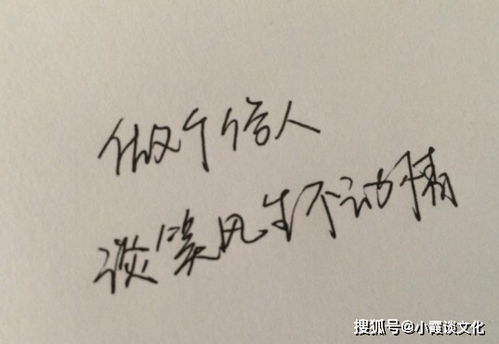 做个俗人
谈笑风生不动情
搜狐号@小霞谈文化